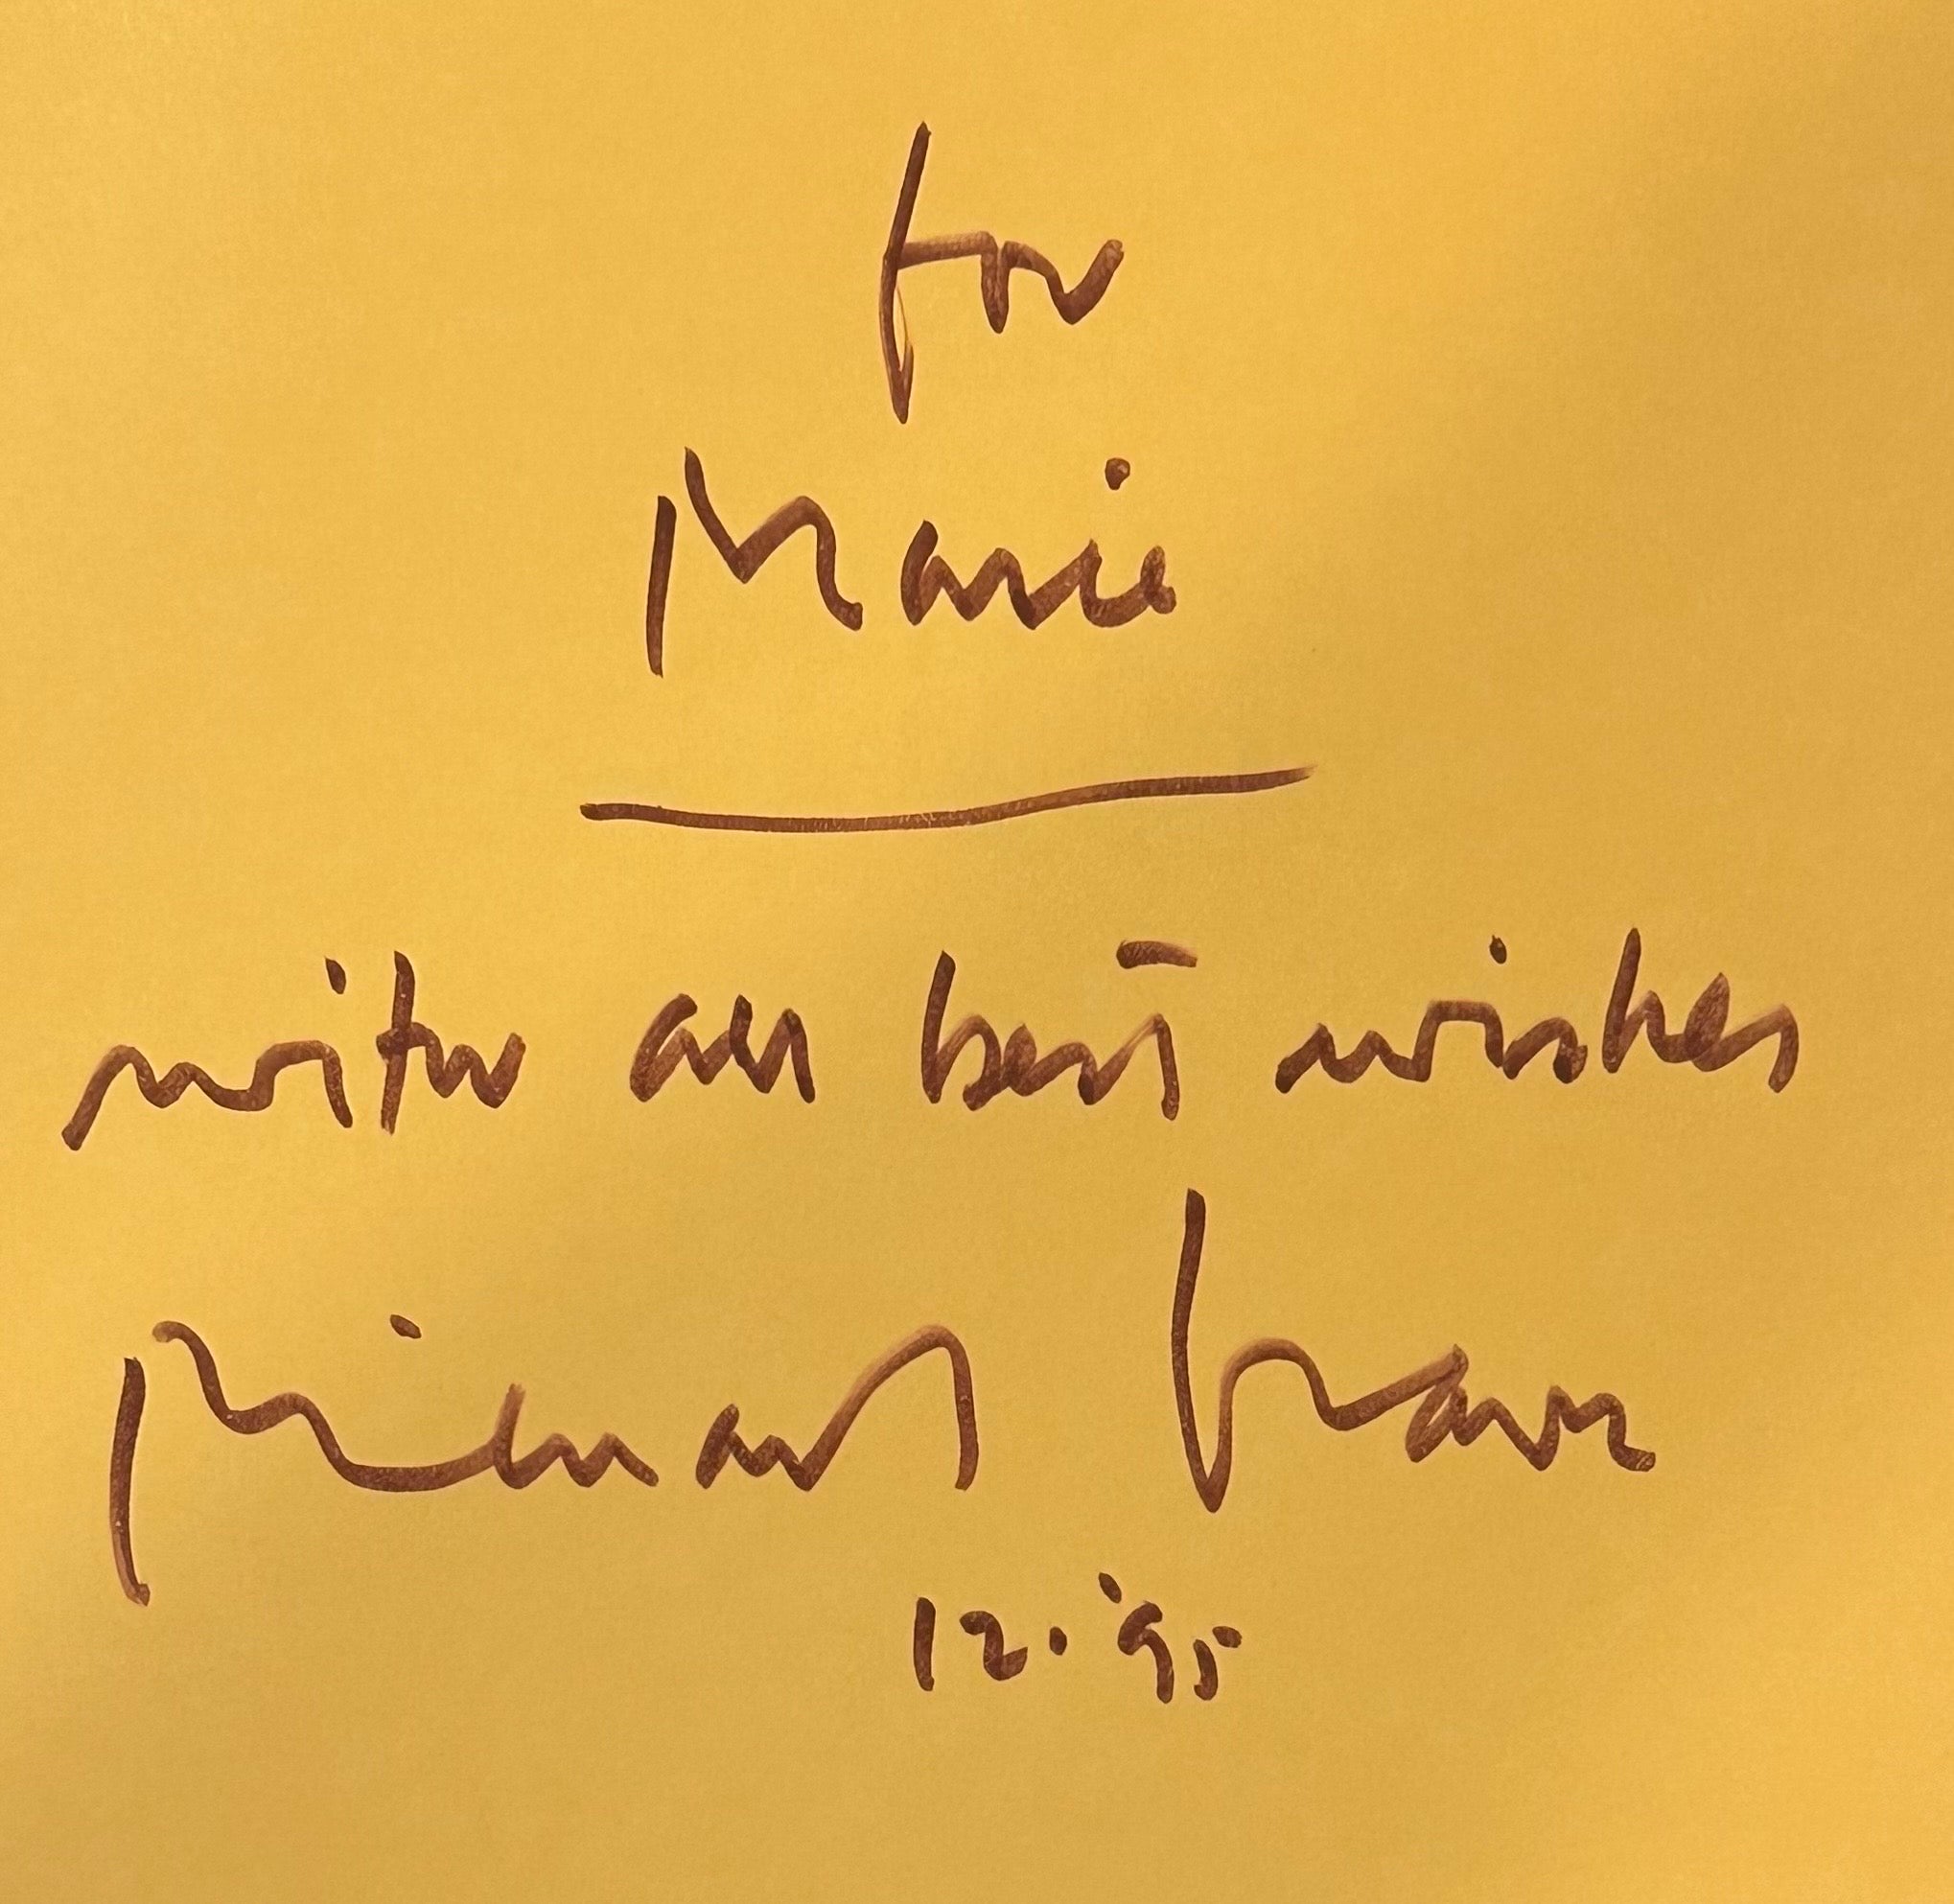 for
Marie
with all best wishes
12.'95